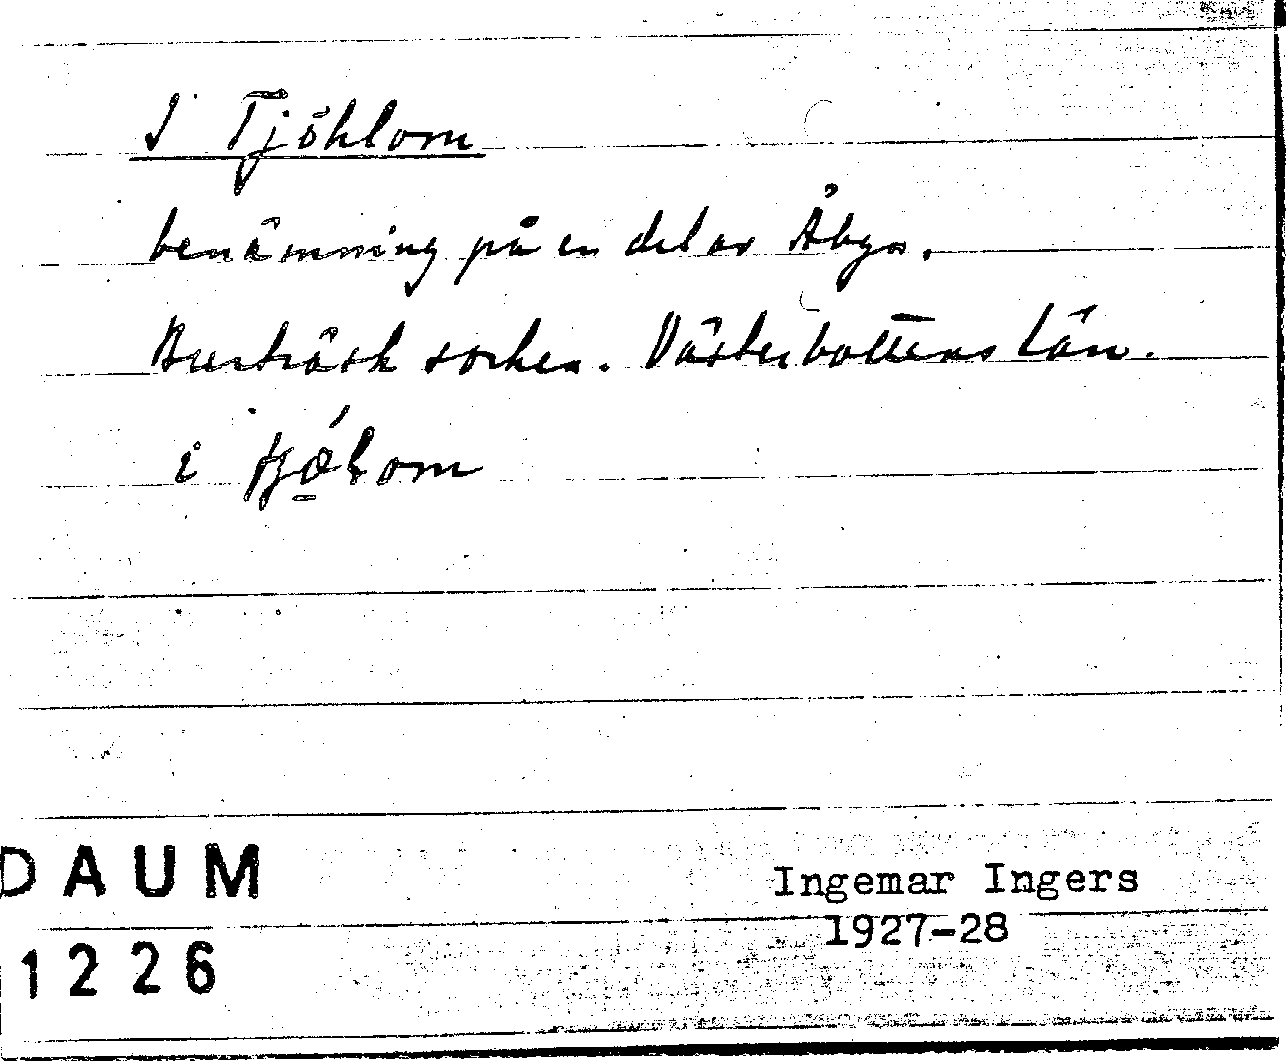 I Tjöhlom
benämning på en del av Åbyn.
Burträsk socken. Västerbottens län.
i
DAUM
1226
Ingemar Ingers
1927-28